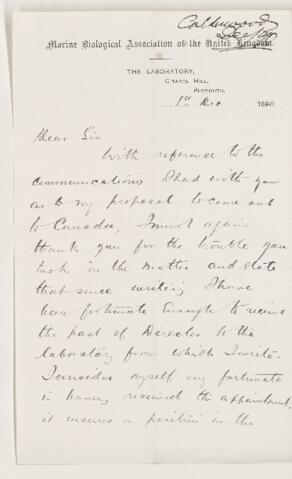 Calderwood
Dec 1/90
Marine Biological Association of the United Kingdom.
THE LABORATORY,
CITADEL HILL,
PLYMOUTH,
1st Dec 1890
Dear Sir
With reference to the
communications I had with you
as to my proposal to come out
to Canada, I must again
thank you for the trouble you
took in the matter and state
that since writing I have
been fortunate enough to receive
the post of Director to the
laboratory from which I write.
I consider myself very fortunate
in having received the appointment,
it ensures a position in the